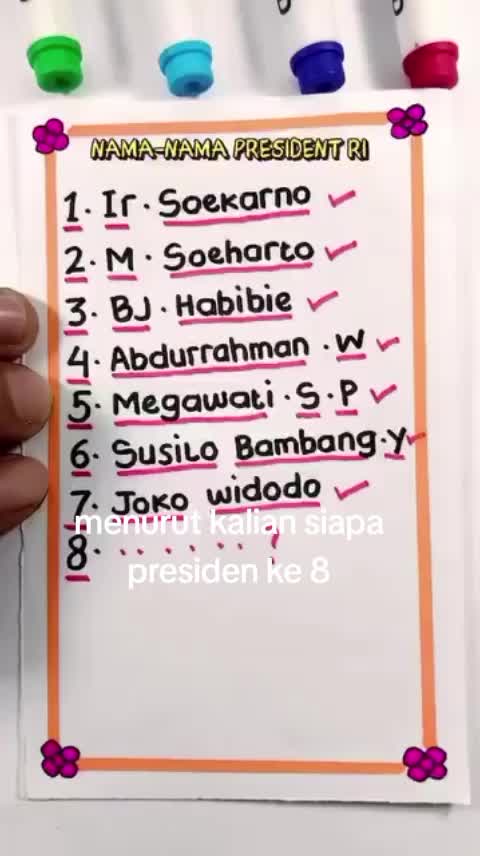 NAMA-NAMA PRESIDENT RI
1. Ir. Soekarno
2. M. Soeharto
3. BJ. Habibie
4. Abdurrahman. W
5. Megawati. S. P
6. Susilo Bambang. Y
7. Joko widodo
8. . . . . . . ?
menurut kalian siapa
presiden ke 8